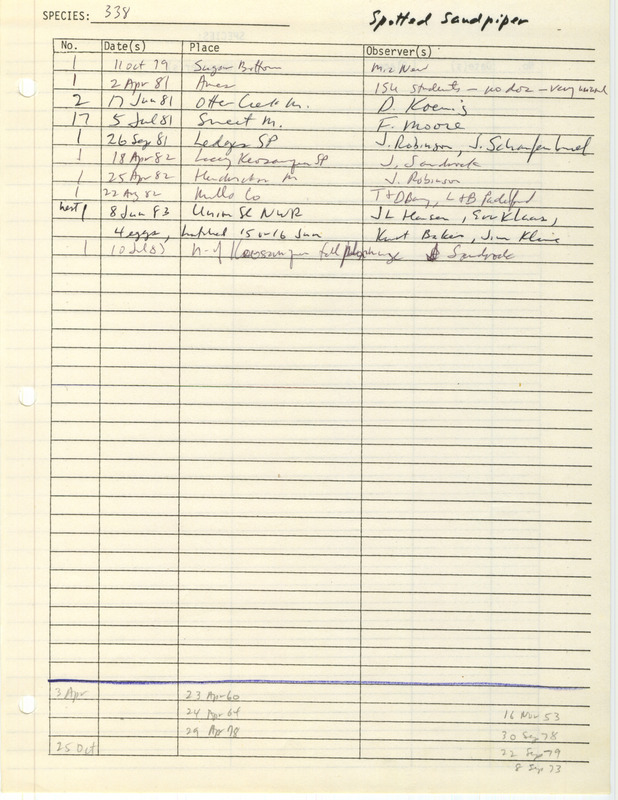 SPECIES: 338 Spotted Sandpiper
No. Date(s) Place Observer(s)
1 11 Oct 79 Sugar Bottom
1 2 Apr 81 Ames ISU students - no doc - very unusual
2 17 Jun 81 Otter Creek M. D. Koenig
17 5 Jul 81 Sweet M. F. Moore
1 26 Sep 81 Ledges SP J. Robinson, J. Schaufenbuel
1 18 Apr 82 Lacey Keosauqua SP J. Sandrock
1 25 Apr 82 M J. Robinson
1 22 Aug 82 Mills Co T+D Bray, L+B Padelford
nest 1 8 Jun 83 Union Sl NWR J L Hansen, Erv Klaas,
4 eggs, hatched 15 or 16 Jun Kurt Baker, Jim Kline
1 10 Jul 83 n of Keosauqua J Sandrock
3 Apr 23 Apr 60
24 Apr 64 16 Nov 53
29 Apr 78 30 Sep 78
25 Oct 22 Sep 79
8 Sep 73